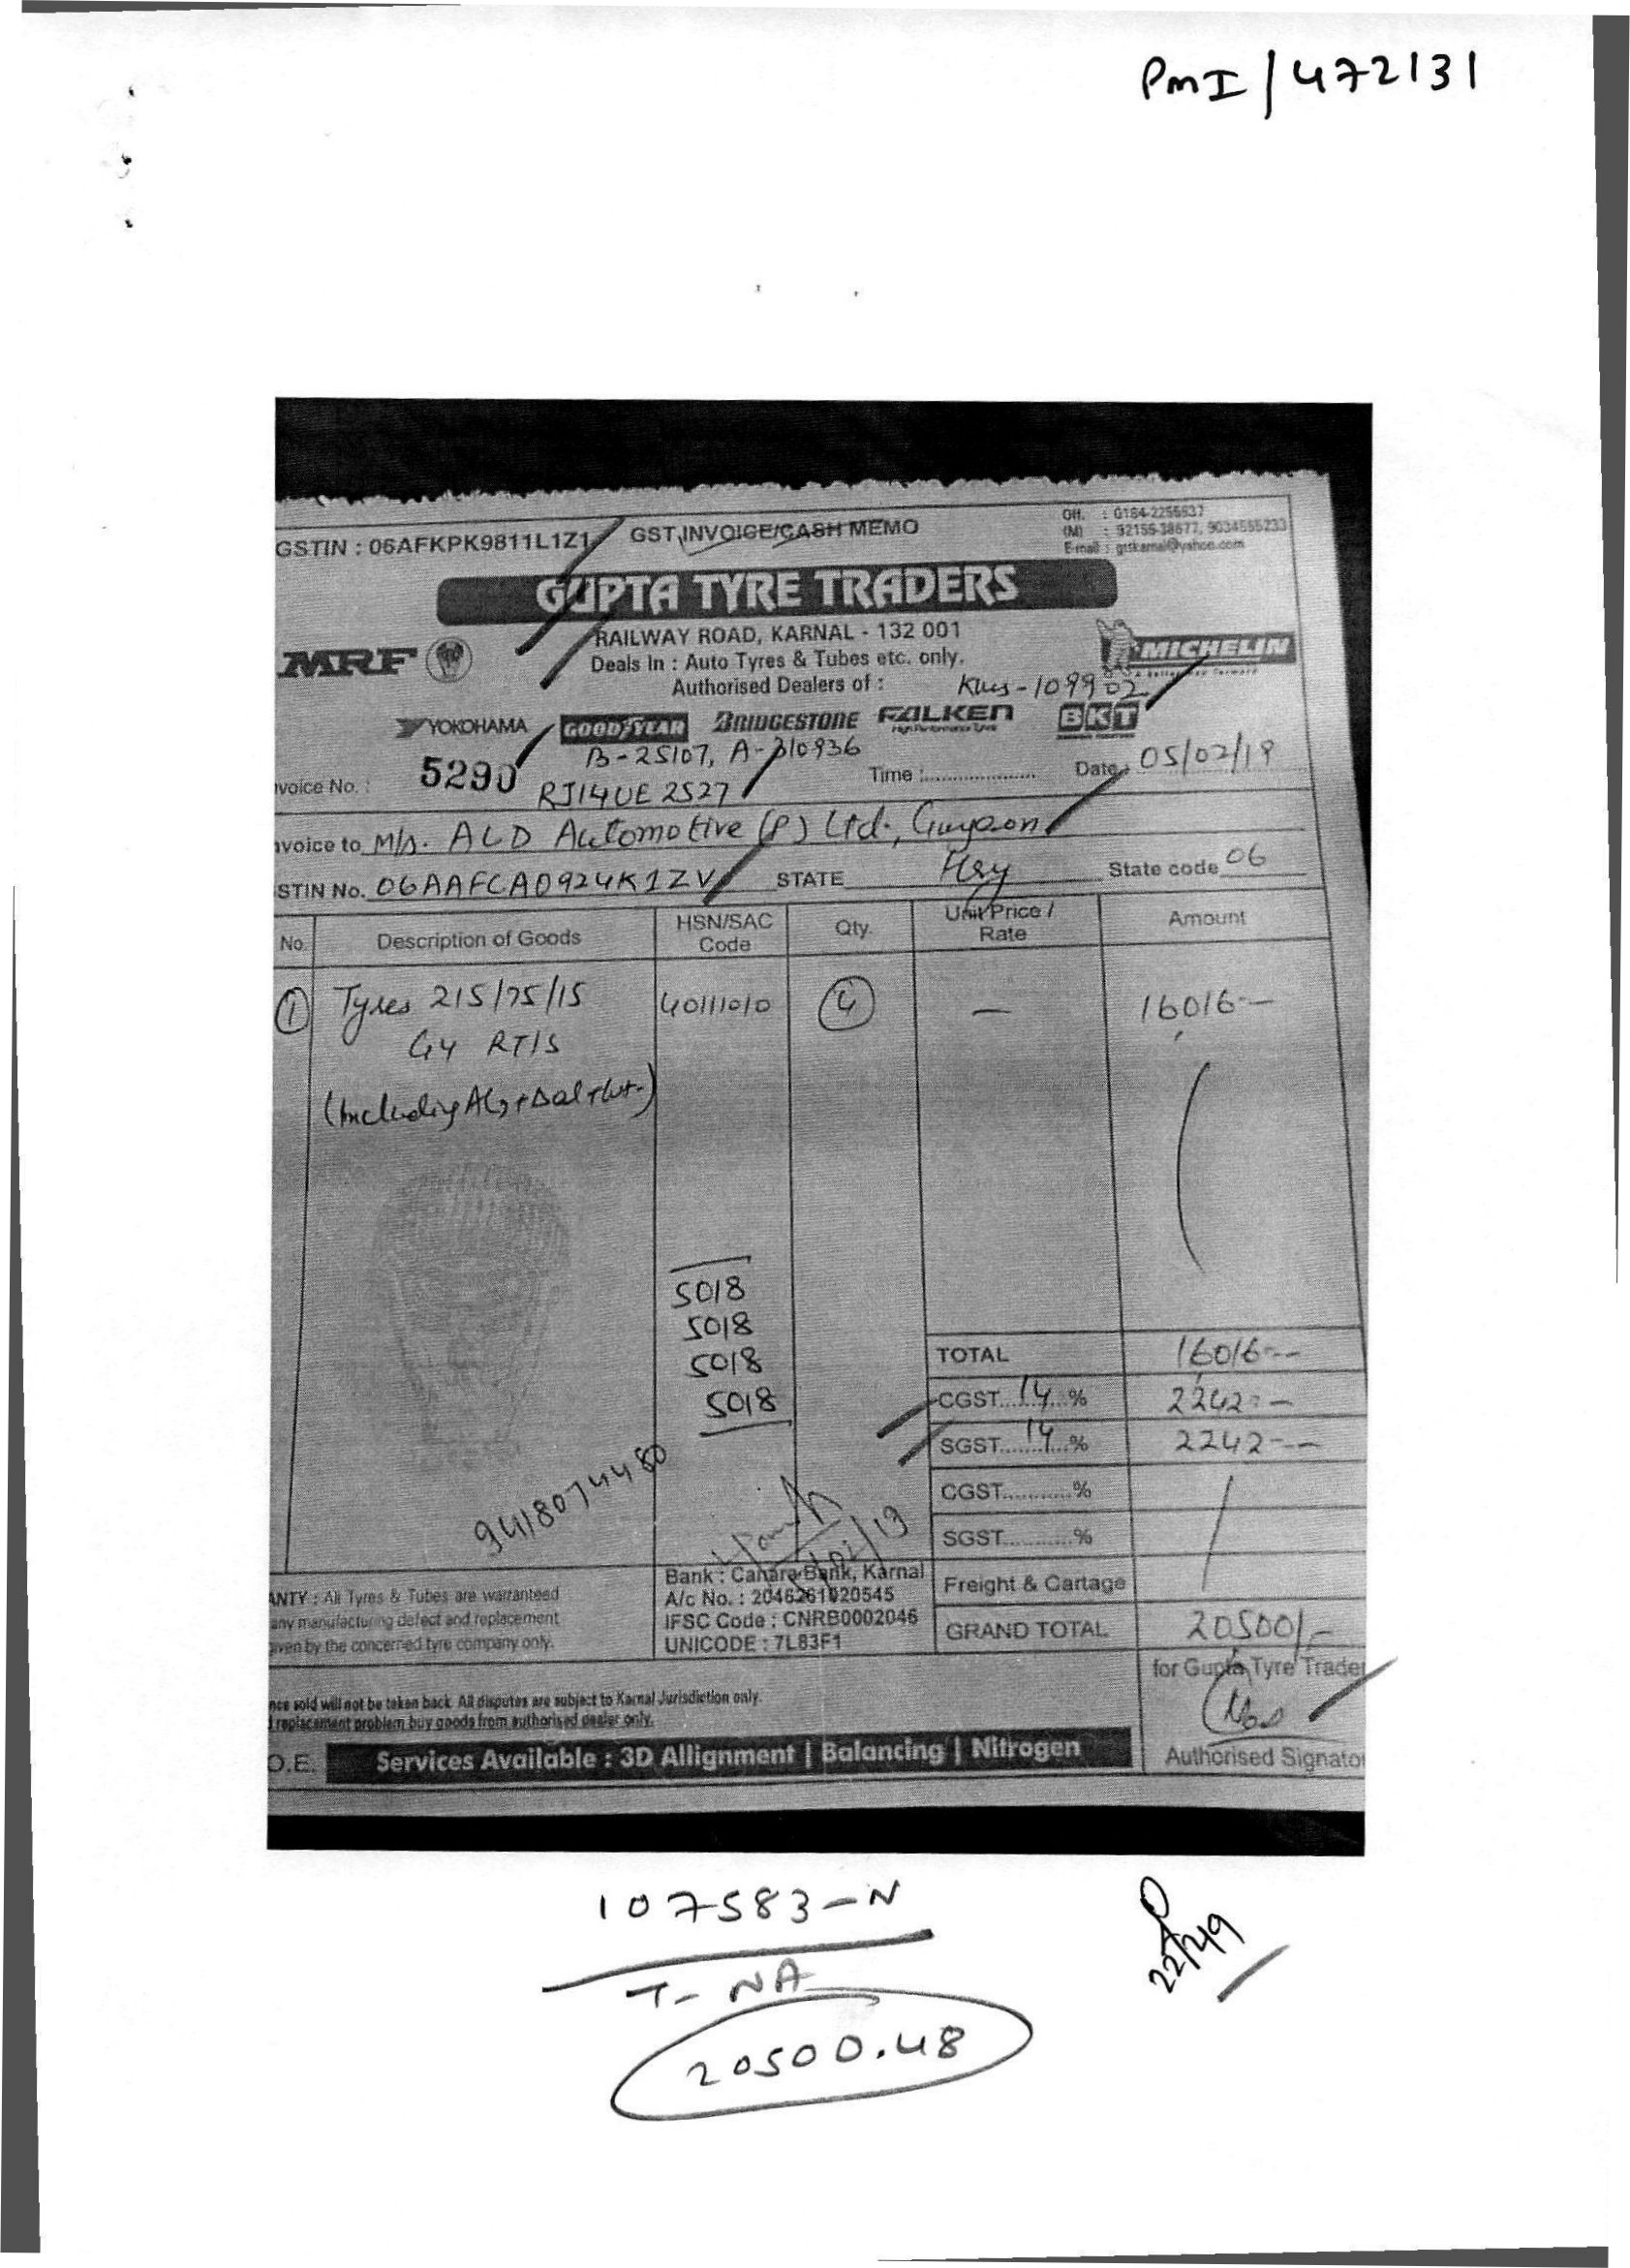 PmI/472131
GSTIN : 06AFKPK9811L1Z1 GST INVOICE/CASH MEMO
Off. : 0184-2255537
(M) : 92155-38677, 9034555233
E-mail : gttkarnal@yahoo.com
GUPTA TYRE TRADERS
RAILWAY ROAD, KARNAL - 132 001
MRF Deals In : Auto Tyres & Tubes etc. only. MICHELIN
Authorised Dealers of : Kms-109902
YOKOHAMA GOODYEAR BRIDGESTONE FALKEN BKT
B-25107, A-310936
voice No. : 5290 RJ14UE2527 Time :.................... Date : 05/02/19
voice to M/s. ALD Automotive (P) Ltd., Gurgaon
STIN No. 06AAFCA0924K1ZV STATE Hry State code 06
No. Description of Goods HSN/SAC Code Qty. Unit Price / Rate Amount
① Tyres 215/75/15 40111010 ④ — 16016-—
GY RT/S
(Including
5018
5018
5018
5018
9418074480
TOTAL 16016-—
CGST...14...% 2242-—
SGST...14...% 2242-—
CGST............%
SGST............%
Freight & Cartage
GRAND TOTAL 20500/-
ANTY : All Tyres & Tubes are warranteed
any manufacturing defect and replacement
given by the concerned tyre company only.
Bank : Canara Bank, Karnal
A/c No. : 2046261020545
IFSC Code : CNRB0002046
UNICODE : 7L83F1
for Gupta Tyre Trader
nce sold will not be taken back. All disputes are subject to Karnal Jurisdiction only.
replacement problem buy goods from authorised dealer only.
O.E. Services Available : 3D Allignment | Balancing | Nitrogen
Authorised Signator
107583-N
T- NA
20500.48